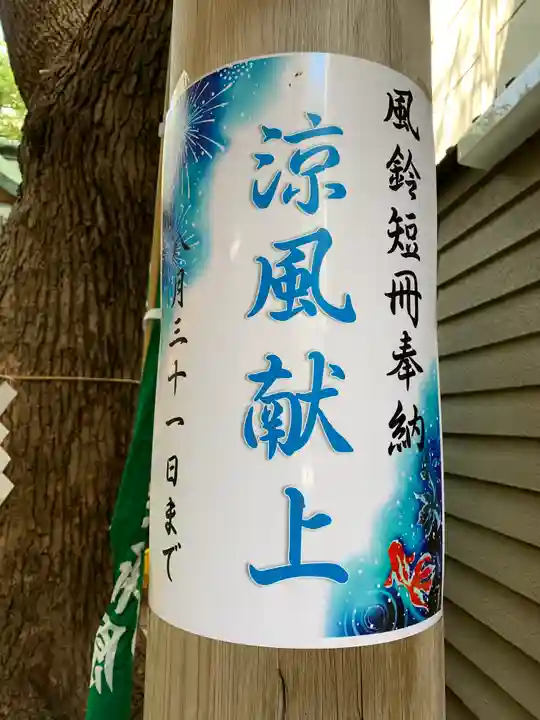 風鈴短冊奉納
涼風献上
八月三十一日まで